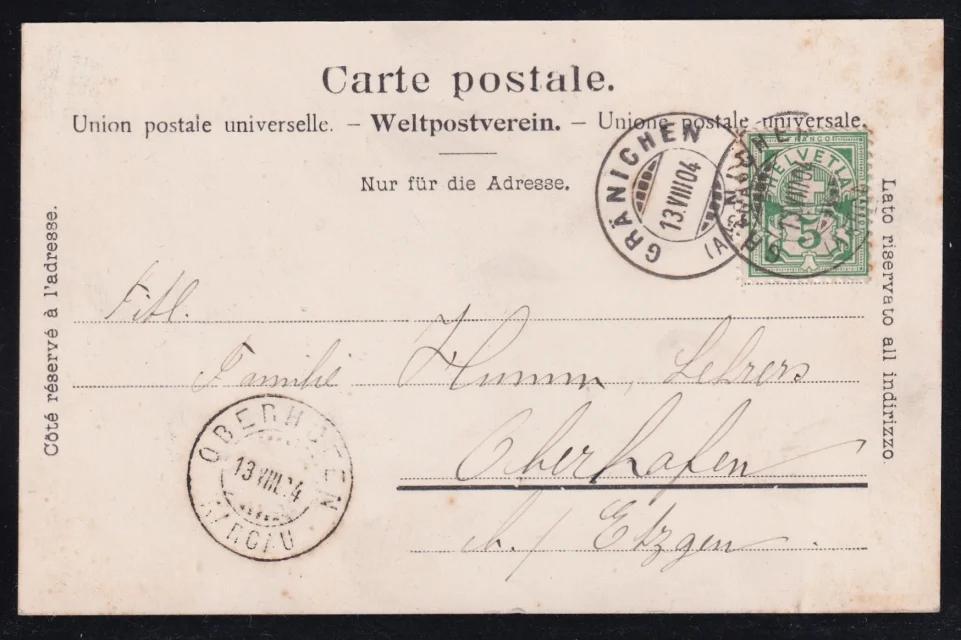 Carte postale.
Union postale universelle. – Weltpostverein. – Unione postale universale.
Nur für die Adresse.
Côté réservé à l'adresse.
Lato riservato all indirizzo
GRÄNICHEN
13.VIII.04
FRANCO
HELVETIA
5
Familie Humm, Lehrers
Oberhofen
b./ Etzgen.
OBERHOFEN
13.VIII.04
AARGAU